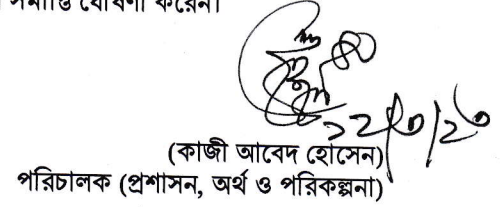 সমাপ্তি ঘোষণা করেন।
(কাজী আবেদ হোসেন)
পরিচালক (প্রশাসন, অর্থ ও পরিকল্পনা)